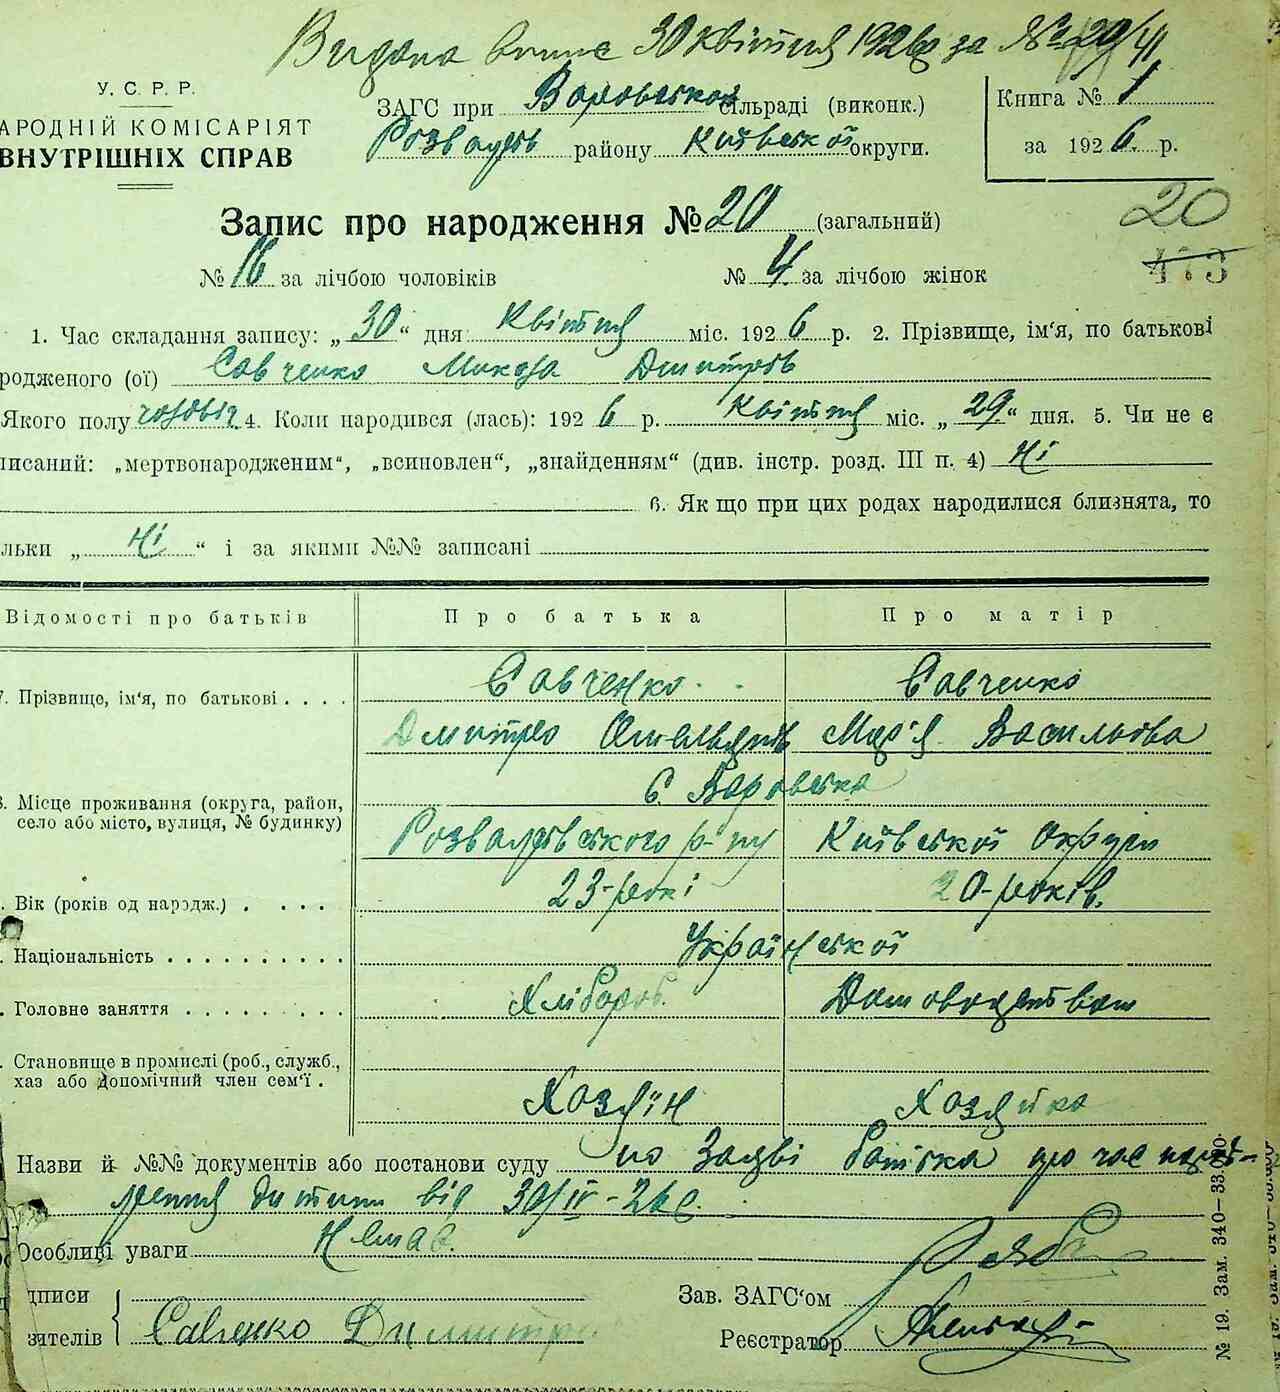 Видана виписка 30 квітня 1926 р за № 20/41
У. С. Р. Р.
АРОДНІЙ КОМІСАРІЯТ
ВНУТРІШНІХ СПРАВ
ЗАГС при Воровській сільраді (виконк.)
Розважів району Київської округи.
Книга № 1
за 1926 р.
Запис про народження № 20 (загальний)
20
№ 16 за лічбою чоловіків № 4 за лічбою жінок
473
1. Час складання запису: „30“ дня Квітня міс. 1926 р. 2. Прізвище, ім'я, по батькові
родженого (ої) Савченко Микола Дмитрів
Якого полу чоловіч 4. Коли народився (лась): 1926 р. Квітня міс. „29“ дня. 5. Чи не є
писаний: „мертвонародженим“, „всиновлен“, „знайденням“ (див. інстр. розд. III п. 4) Ні
6. Як що при цих родах народилися близнята, то
льки „ Ні “ і за якими №№ записані
Відомості про батьків Про батька Про матір
7. Прізвище, ім'я, по батькові . . . . Савченко Савченко
Дмитро Омелянів Мар'я Васильова
8. Місце проживання (округа, район, село або місто, вулиця, № будинку) С. Воровська
Розважівського р-ну Київської Округи
. Вік (років од народж.) . . . . 23-рокі 20-років.
. Національність . . . . . . . . . . Української
. Головне заняття . . . . . . . . . Хлібороб. Домоводством
. Становище в промислі (роб., служб.,
хаз або допомічний член сем'ї . Хозяїн Хозяйка
Назви й №№ документів або постанови суду по Заяві батька про час народ-
ження дитини від 30/IV-26 р.
Особливі уваги Немає.
дписи
вятелів Савченко Димитр
Зав. ЗАГС'ом
Реєстратор
№ 19. Зам. 340—33.000.